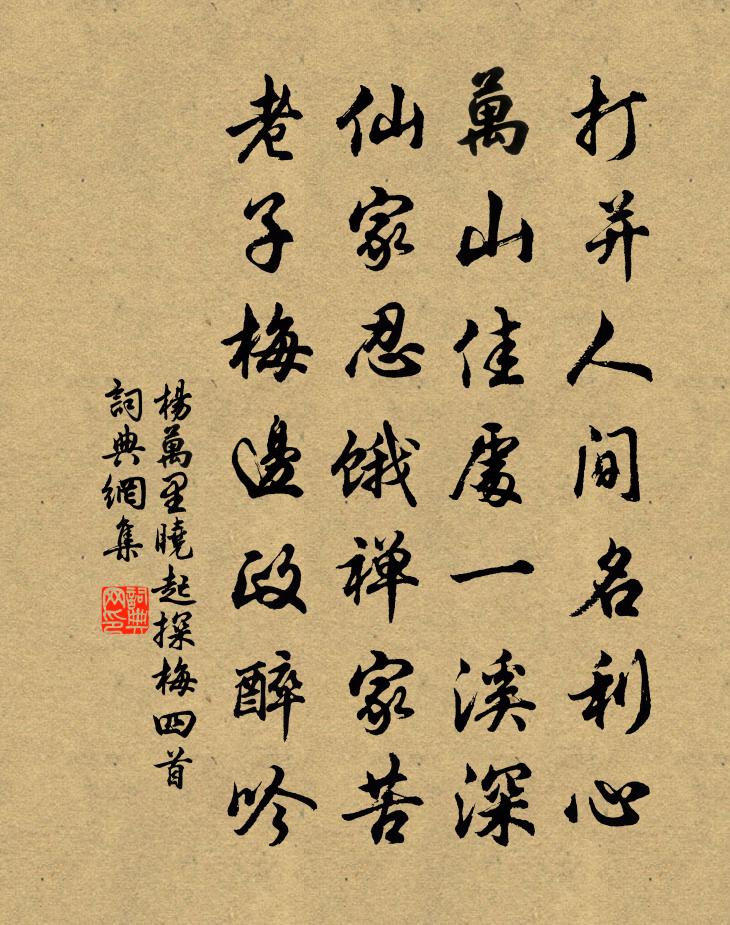 打并人间名利心
萬山佳處一溪深
仙家忍饿禅家苦
老子梅邊政醉吟
楊萬里曉起探梅四首
詞典網集
詞典网印